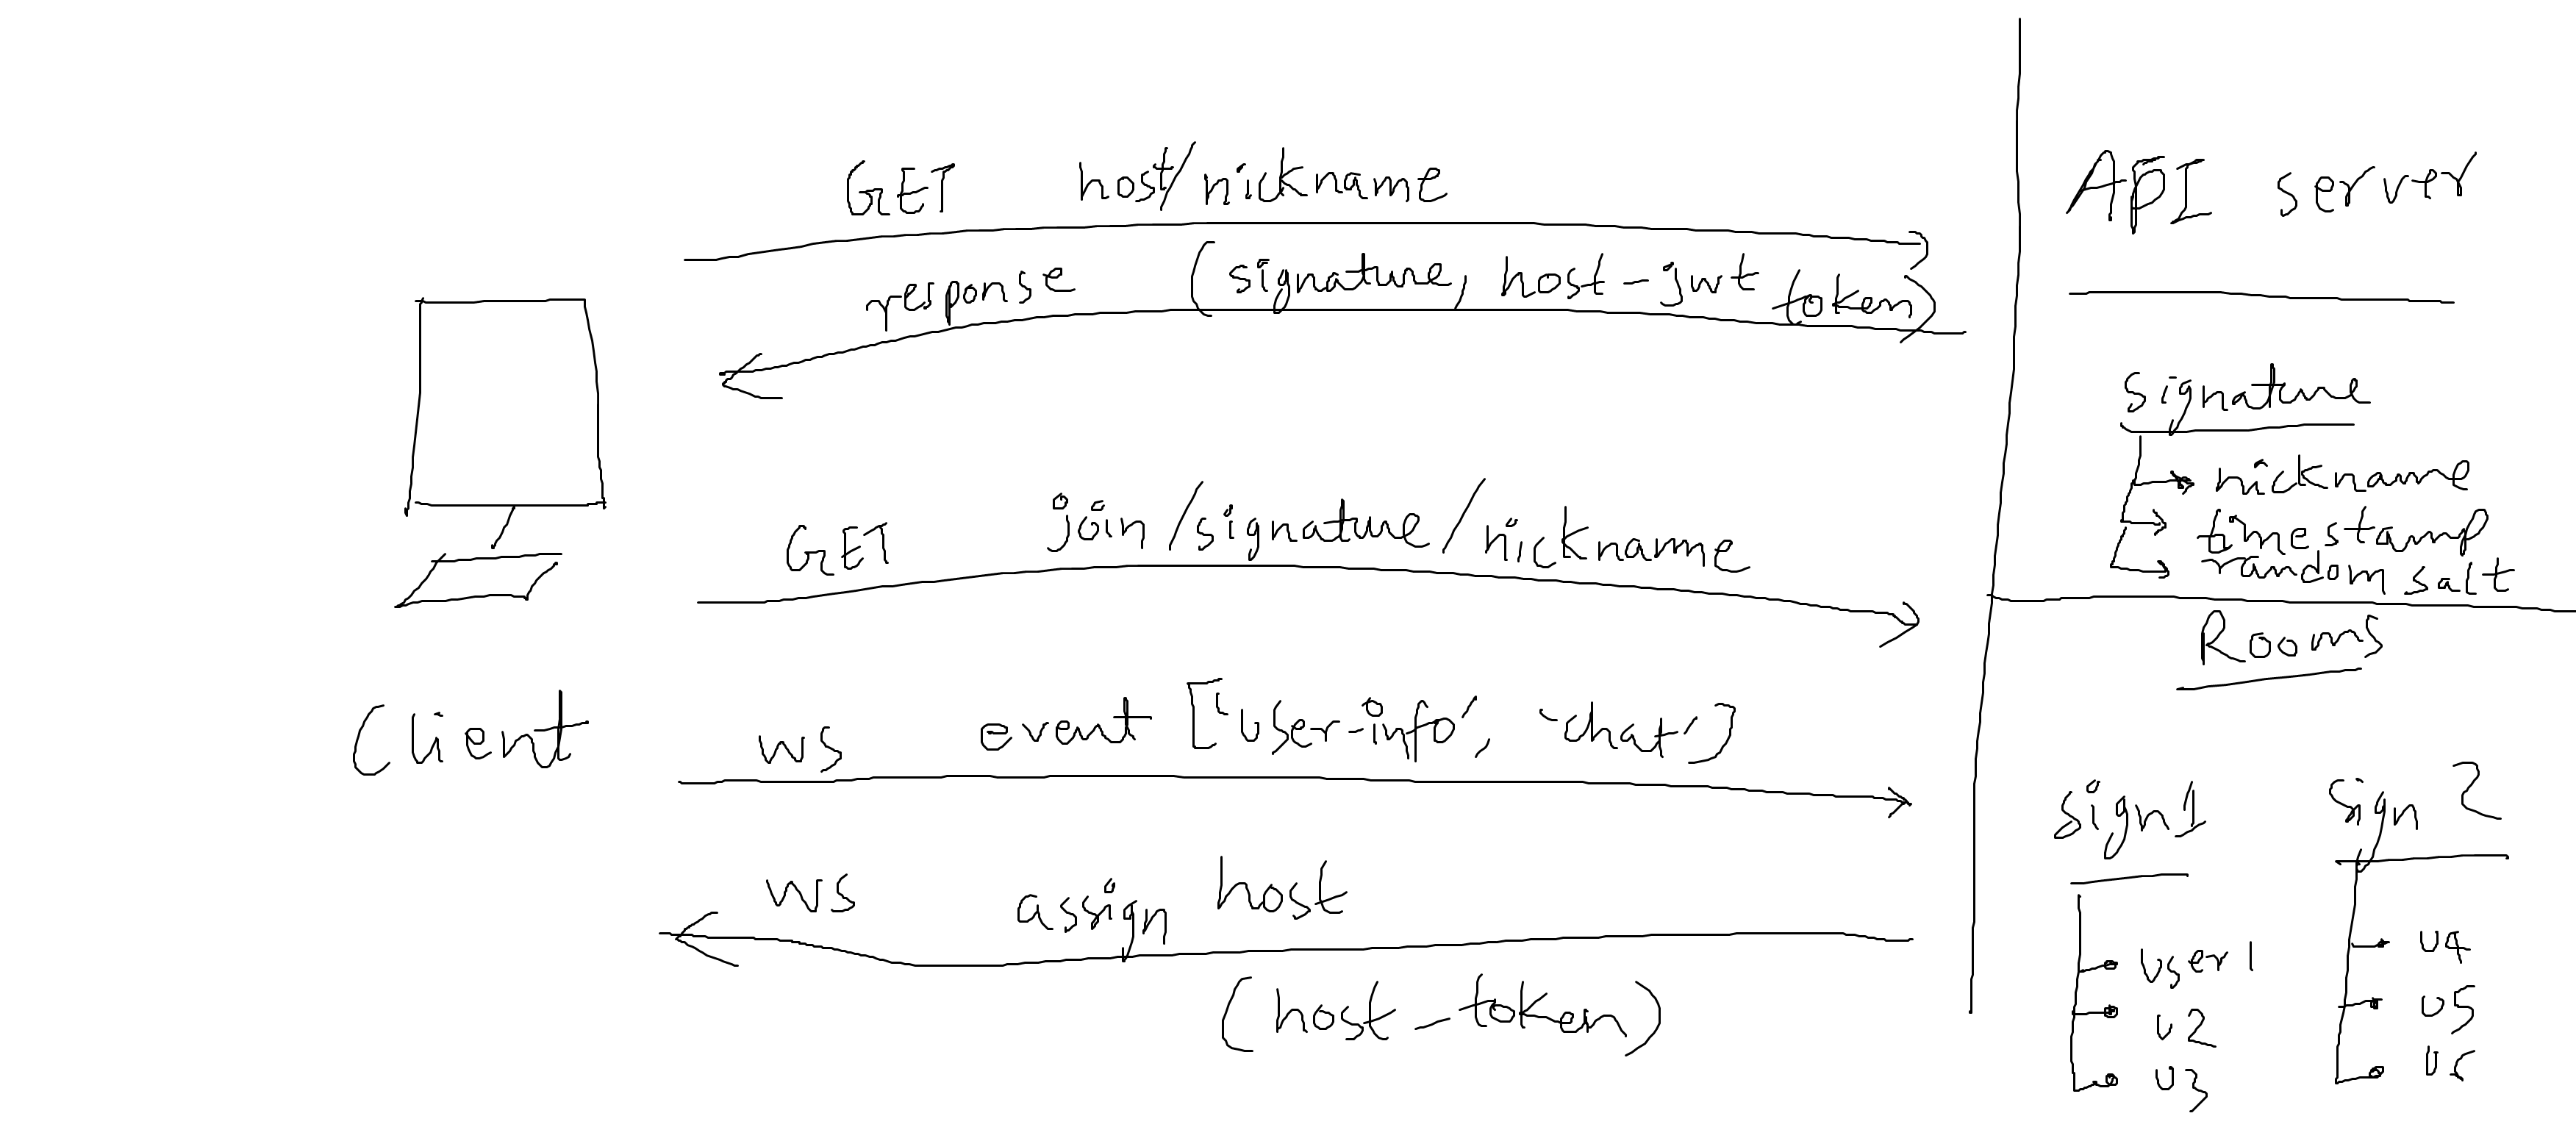 GET host/nickname
response (signature, host-jwt token)
GET join/signature/nickname
ws event ['user-info', 'chat']
ws assign host
(host_token)
Client
API server
signature
nickname
timestamp
random salt
Rooms
sign1
user1
u2
u3
sign2
u4
u5